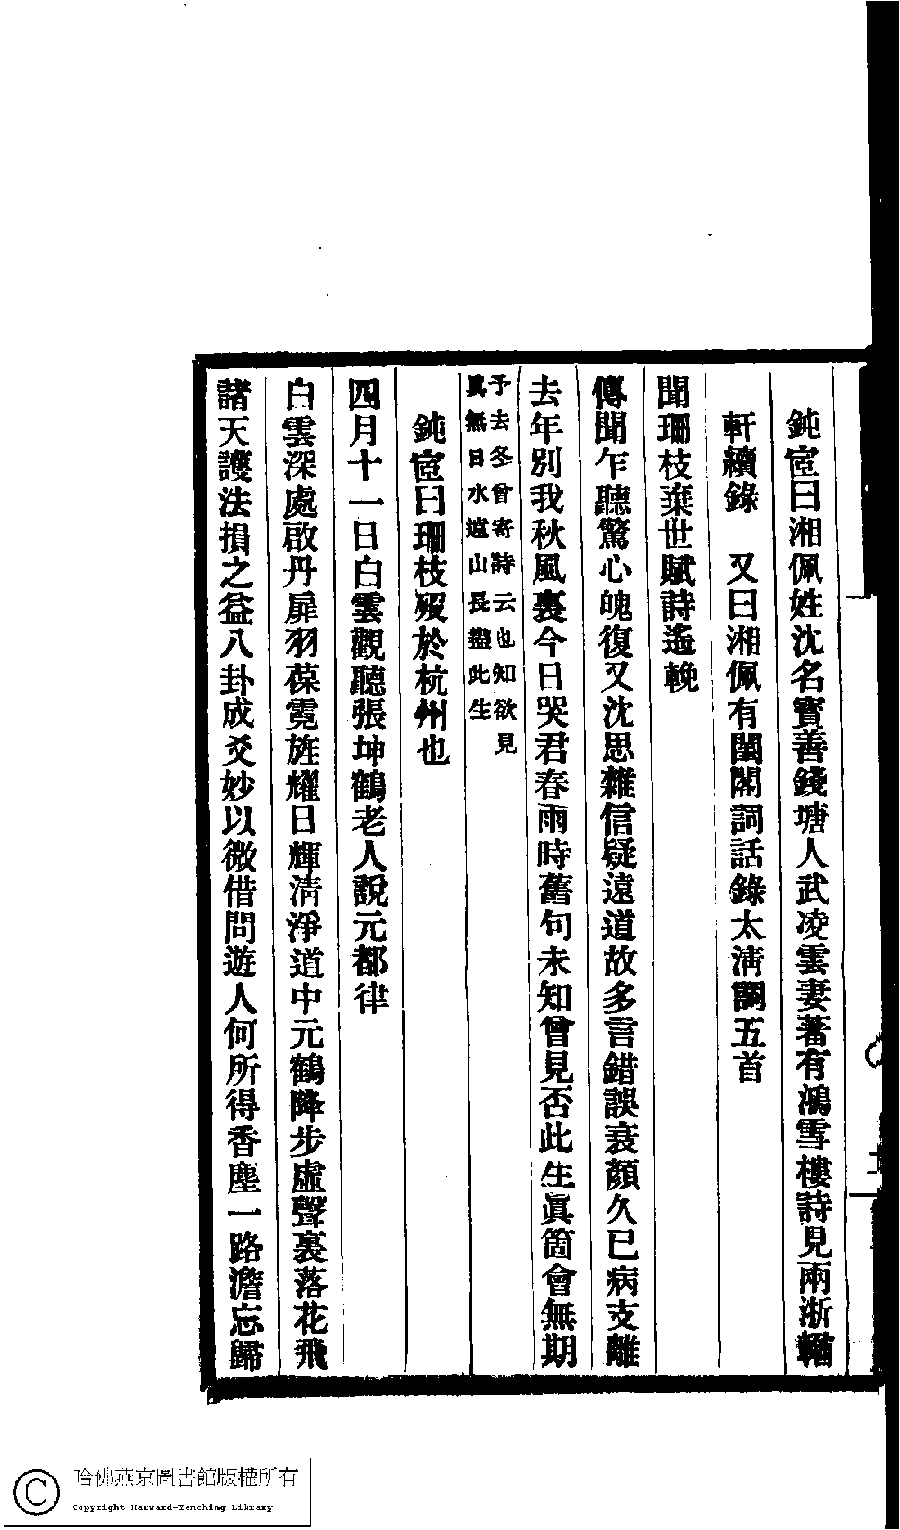 鈍宧曰湘佩姓沈名寶善錢塘人武凌雲妻著有鴻雪樓詩見兩浙輶
軒續錄　又曰湘佩有閨閣詞話錄太淸詞五首
聞珊枝棄世賦詩遙輓
傳聞乍聽驚心魄復又沈思雜信疑遠道故多言錯誤衰顏久已病支離
去年別我秋風裏今日哭君春雨時舊句未知曾見否此生眞箇會無期
予去冬曾寄詩云也知欲見
眞無日水遠山長盡此生
鈍宧曰珊枝歿於杭州也
四月十一日白雲觀聽張坤鶴老人說元都律
白雲深處啟丹扉羽葆霓旌耀日輝淸淨道中元鶴降步虛聲裏落花飛
諸天護法損之益八卦成爻妙以微借問遊人何所得香塵一路澹忘歸
哈佛燕京圖書館版權所有
Copyright Harvard-Yenching Library